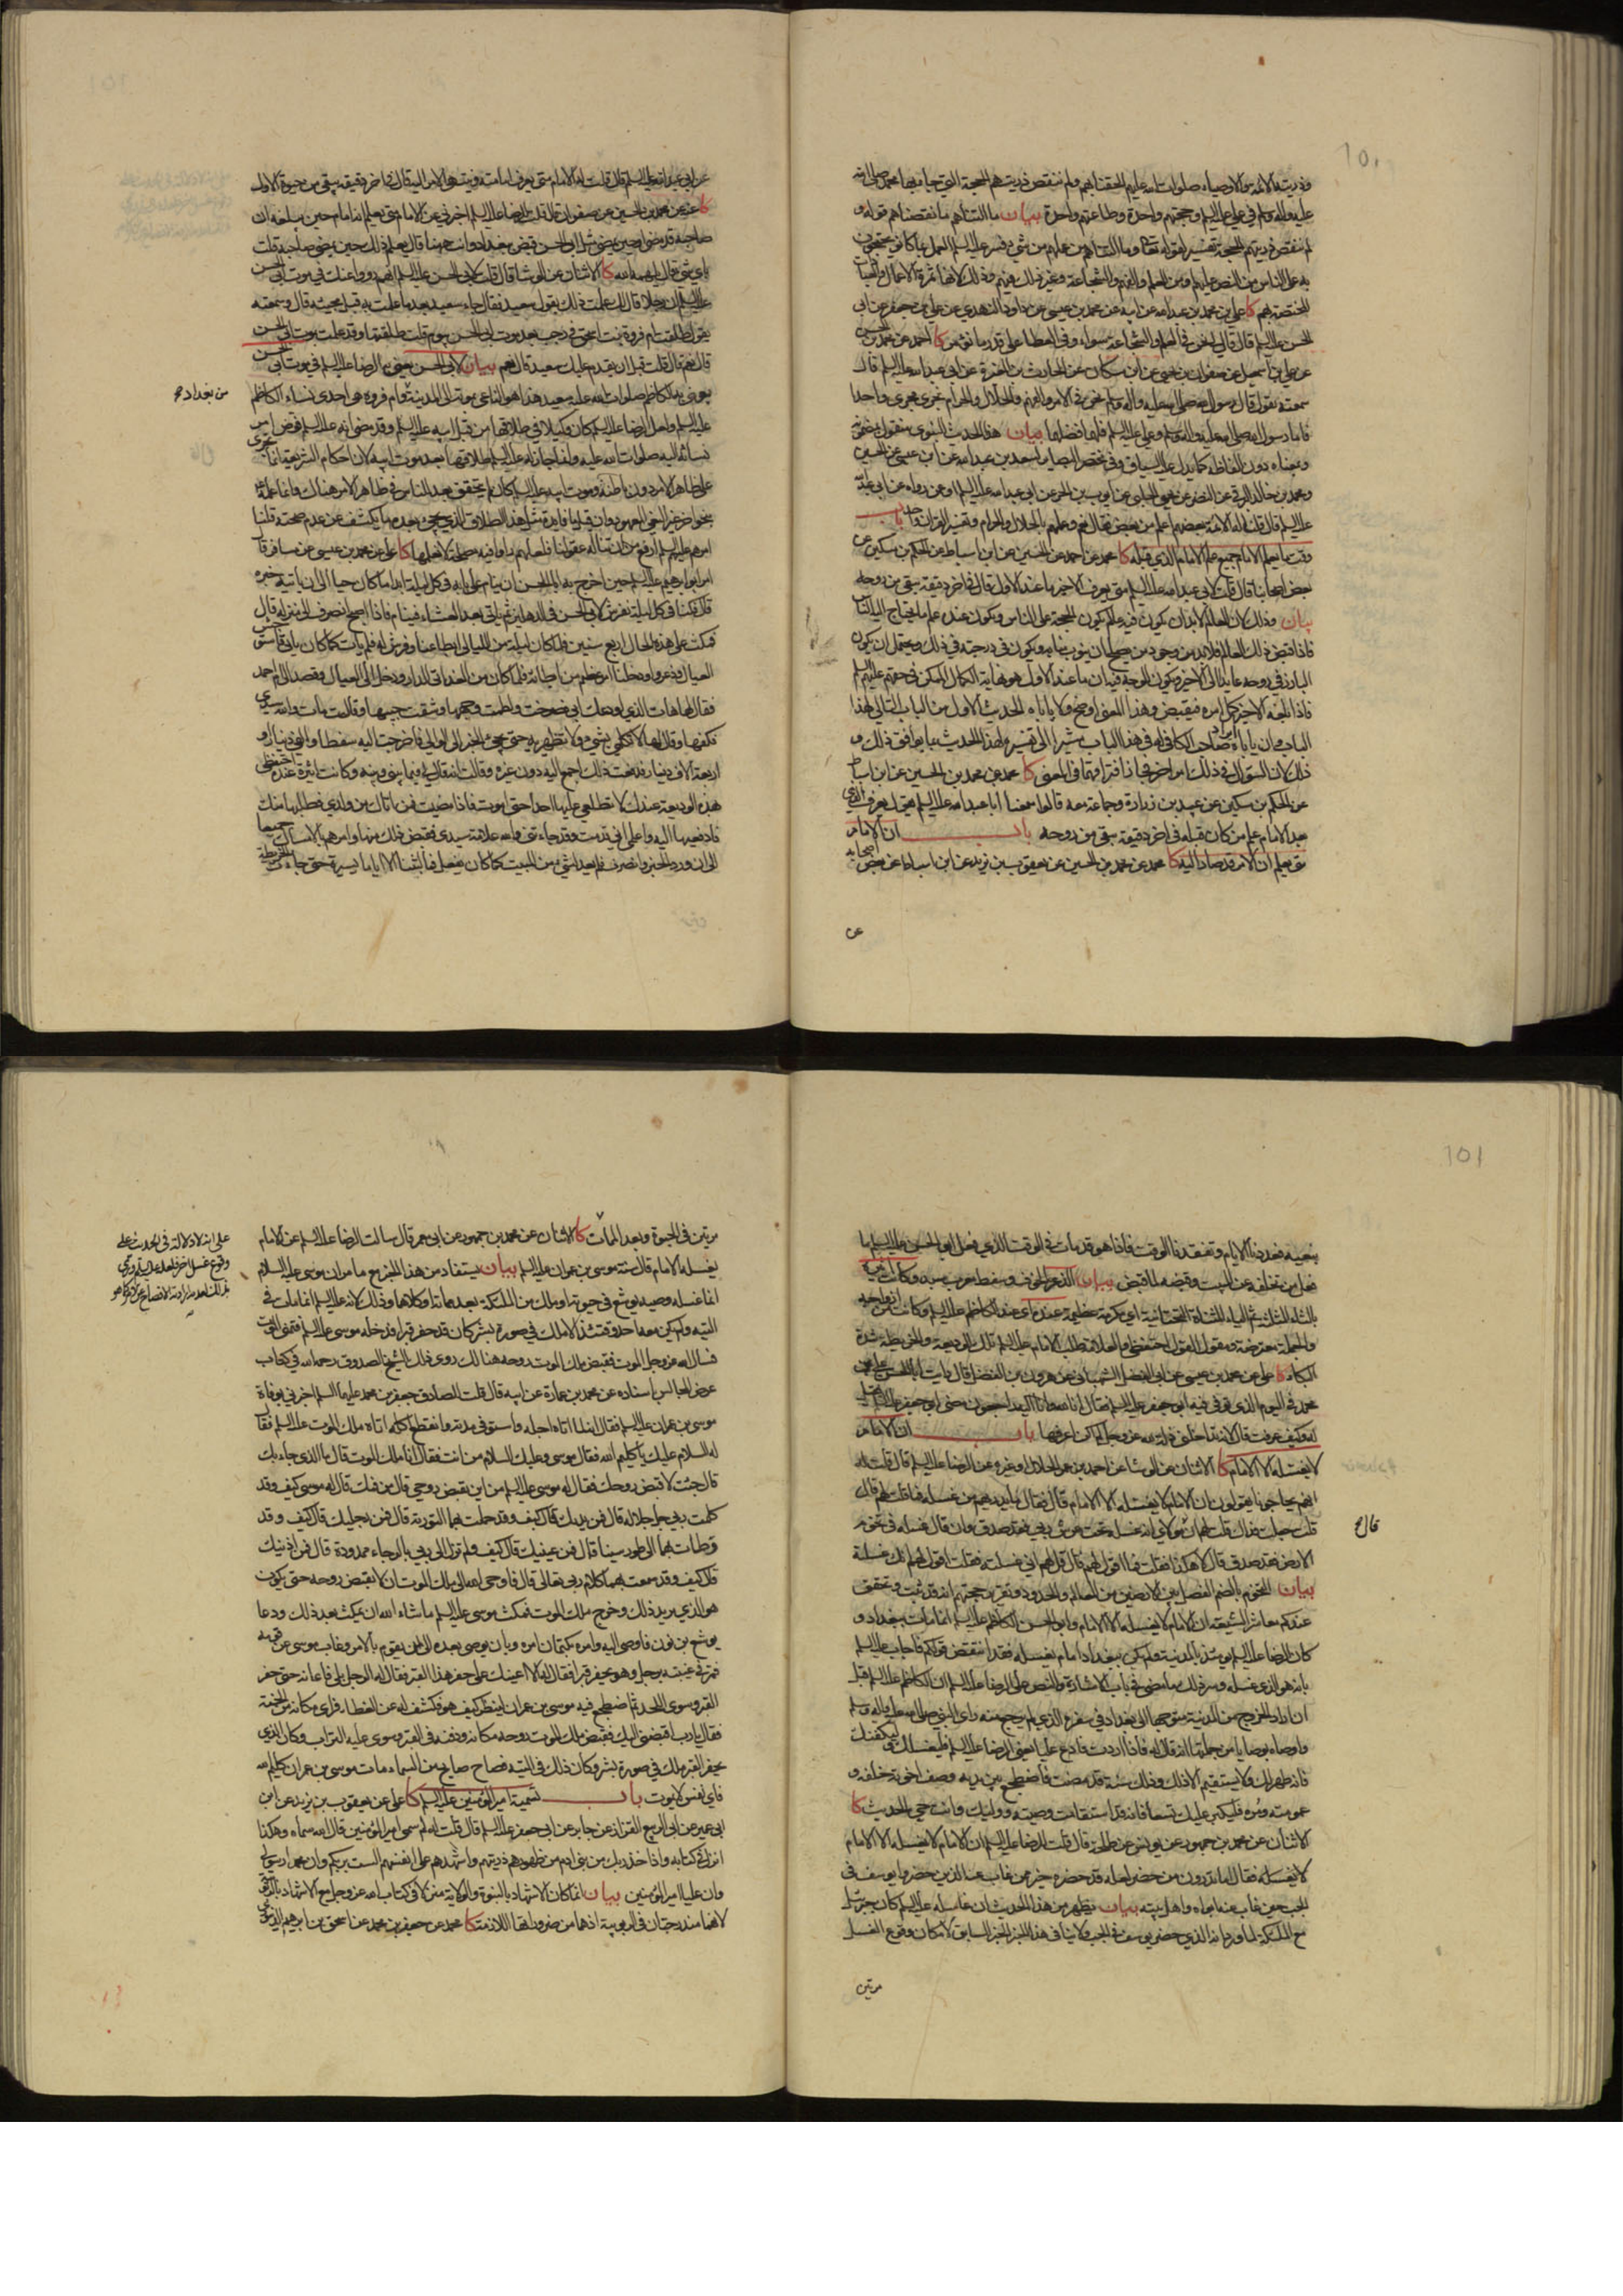 وذريته الائمة والاوصياء صلوات الله عليهم الحقنا بهم ولم ننقص ذريتهم الحجة التي جاء بها محمد صلى الله
عليه وآله وسلم في علي عليه السلم وحجتهم واحدة وطاعتهم واحدة بيان ما التناهم ما نقصناهم قوله و
لم ننقص ذريتهم الحجة تفسير لقوله تعالى وما التناهم من عملهم من شيء فسر عليه السلم العمل بما كانوا يحتجون
به على الناس من النص عليهم ومن العلم والفهم والشجاعة وغير ذلك فيهم وذلك لانها ثمرة الاعمال والعبادات
المختصة بهم كا علي بن محمد بن عبد الله عن ابيه عن محمد بن عيسى عن داود النهدي عن علي بن جعفر عن ابي
الحسن عليه السلم قال قال لي نحن في العلم والشجاعة سواء وفي العطايا على قدر ما نؤمر كا احمد عن محمد بن الحسن
عن علي بن اسمعيل عن صفوان بن يحيى عن ابن مسكان عن الحارث بن المغيرة عن ابي عبد الله عليه السلم قال
سمعته يقول قال رسول الله صلى الله عليه وآله وسلم نحن في الامر والفهم والحلال والحرام نجري مجرى واحدا
فاما رسول الله صلى الله عليه وآله وسلم وعلي عليه السلم فلهما فضلهما بيان هذا الحديث النبوي منقول بمضمونه
ومعناه دون الفاظه كما يدل عليه السياق وفي مختصر البصاير لسعد بن عبد الله عن ابن عيسى عن الحسين
ومحمد بن خالد البرقي عن النضر عن يحيى الحلبي عن ايوب بن الحر عن ابي عبد الله عليه السلم او عمن رواه عن ابي عبد الله
عليه السلم قال قلت له الائمة بعضهم اعلم من بعض فقال نعم وعلمهم بالحلال والحرام وتفسير القران واحد باب
وقت ما يعلم الامام جميع علم الامام الذي قبله كا محمد عن احمد عن الحسين عن ابن اسباط عن الحكم بن مسكين عن
بعض اصحابنا قال قلت لابي عبد الله عليه السلم متى يعرف الاخير ما عند الاول قال في اخر دقيقة تبقى من روحه
بيان وذلك لان العالم لابد ان يكون فيه عالم يكون الحجة على الناس ويكون عنده علم ما يحتاج اليه الناس
فاذا قبض ذلك العالم فلابد من وجود من يصلح ان ينوب منابه ويكون في درجته في ذلك ويحتمل ان يكون
البارز في روحه عايدا الى الاخير ويكون الوجه فيه ان ما عند الاول هو نهاية الكمال الممكن في حقهم عليهم السلم
فاذا بلغه الاخير كمل امره فيقبض وهذا المعنى اوضح ولا ياباه الحديث الاول من الباب التالي لهذا
الباب وان ياباه ايراد صاحب الكافي له في هذا الباب مشيرا الى تفسيره لهذا الحديث بما يوافق ذلك و
ذلك لان السؤال في ذلك امر اخر فجاز افتراقهما في المعنى كا محمد عن محمد بن الحسين عن ابن اسباط
عن الحكم بن مسكين عن عبيد بن زرارة وجماعة معه قالوا سمعنا ابا عبد الله عليه السلم يقول يعرف الذي
بعد الامام علم من كان قبله في اخر دقيقة تبقى من روحه باب ان الامام
متى يعلم ان الامر قد صار اليه كا محمد عن محمد بن الحسين عن يعقوب بن يزيد عن ابن اسباط عن بعض اصحابه
عن
عن ابي عبد الله عليه السلم قال قلت له الامام متى يعرف امامته وينتهي الامر اليه قال في اخر دقيقة تبقى من حيوة الاول
كا عنه عن محمد بن الحسين عن صفوان قال قلت للرضا عليه السلم اخبرني عن الامام متى يعلم انه امام حين يبلغه ان
صاحبه قد مضى او حين يمضي مثل ابي الحسن قبض ببغداد وانت ههنا قال يعلم ذلك حين يمضي صاحبه قلت
باي شيء قال يلهمه الله كا الاثنان عن الوشا قال قلت لابي الحسن عليه السلم انهم رووا عنك في موت ابي الحسن
عليه السلم ان رجلا قال لك علمت ذلك بقول سعيد فقال جاء سعيد بعد ما علمت به قبل مجيئه قال وسمعته
يقول طلقت ام فروة بنت اسحق في رجب بعد موت ابي الحسن بيوم قلت طلقتها وقد علمت بموت ابي الحسن
قال نعم قال قلت قبل ان يقدم عليك سعيد قال نعم بيان لابي الحسن يعني به الرضا عليه السلم في موت ابي الحسن
يعني به الكاظم صلوات الله عليه سعيد هذا هو الناعي بموته الى المدينة وام فروة هي احدى نساء الكاظم
من بغداد صح
عليه السلم ولعل الرضا عليه السلم كان وكيلا في طلاقها من قبل ابيه عليه السلم وقد مضى انه عليه السلم فوض امر
نسائه اليه صلوات الله عليه وانما جاز له عليه السلم طلاقها بعد موت ابيه لان احكام الشريعة انما تجري
على ظاهر الامر دون باطنه وموت ابيه عليه السلم كان لم يتحقق بعد للناس في ظاهر الامر هناك وانما علمه
بنحو اخر غير النحو المعهود وان قيل ما فايدة مثل هذا الطلاق الذي يجيء بعده ما يكشف عن عدم صحته قلنا
امرهم عليهم السلم ارفع من ان تناله عقولنا فلعلهم راوا فيه مصلحة لا نعلمها كا علي عن محمد بن عيسى عن مسافر قال
امر ابو ابراهيم عليه السلم حين اخرج به ابا الحسن ان ينام على بابه في كل ليلة ابدا ما كان حيا الى ان ياتيه خبره
قال فكنا في كل ليلة نفرش لابي الحسن في الدهليز ثم ياتي بعد العشاء فينام فاذا اصبح انصرف الى منزله قال
فمكث على هذه الحال اربع سنين فلما كان ليلة من الليالي ابطا عنا وفرش له فلم يات كما كان ياتي فاستوحش
العيال وذعروا ودخلنا امر عظيم من ابطائه فلما كان من الغد اتى الدار ودخل الى العيال وقصد الى ام احمد
فقال لها هات الذي اودعك ابي فصرخت ولطمت وجهها وشقت جيبها وقالت مات والله سيدي
فكفها وقال لها لا تكلمي بشيء ولا تظهريه حتى يجيء الخبر الى الوالي فاخرجت اليه سفطا والفي دينار او
اربعة الاف دينار فدفعت ذلك اجمع اليه دون غيره وقالت انه قال لي فيما بيني وبينه وكانت اثيرة عنده احتفظي
هذه الوديعة عندك لا تطلعي عليها احدا حتى اموت فاذا مضيت فمن اتاك من ولدي فطلبها منك
فادفعيها اليه واعلمي اني قد مت وقد جاءتني والله علامة سيدي فقبض ذلك منها وامرهم بالامساك جميعا
الى ان ورد الخبر وانصرف فلم يعد لشيء من المبيت كما كان يفعل فما لبثنا الا اياما يسيرة حتى جاءت الخريطة
بنعيه فعددنا الايام وتفقدنا الوقت فاذا هو قد مات في الوقت الذي فعل ابو الحسن عليه السلم ما
فعل من تخلفه عن المبيت وقبضه لما قبض بيان الذعر الخوف وسفط معرب سبد وكانت اثيرة
بالثاء المثلثة ثم الياء المثناة التحتانية اي مكرمة عظيمة عنده اي عند الكاظم عليه السلم وكانت من ازواجه
والجملة معترضة ومقول القول احتفظي والعلامة طلب الامام عليه السلم تلك الوديعة والخريطة شدة
البكاء كا علي عن محمد بن عيسى عن ابي الفضل الشهباني عن هرون بن الفضل قال رايت ابا الحسن علي بن
محمد في اليوم الذي توفي فيه ابو جعفر عليه السلم فقال انا لله وانا اليه راجعون مضى ابو جعفر عليه السلم فقيل
له وكيف عرفت قال لانه تداخلني ذلة لله عز وجل لم اكن اعرفها باب ان الامام
لا يغسله الا الامام كا الاثنان عن الوشا عن احمد بن عمر الحلال او غيره عن الرضا عليه السلم قال قلت له
انهم يحاجونا يقولون ان الامام لا يغسله الا الامام قال فقال ما يدريهم من غسله فما قلت لهم قال
قلت جعلت فداك قلت لهم ان مولاي انه غسله تحت عرش ربي فقد صدق وان قال غسله في تخوم
قال صح
الارض فقد صدق قال لا هكذا فقلت فما اقول لهم قال قل لهم اني غسلته فقلت اقول لهم انك غسلته
بيان التخوم بالضم الفصل بين الارضين من المعالم والحدود وتقرير حجتهم انه قد ثبت وتحقق
عندكم معاشر الشيعة ان الامام لا يغسله الا الامام وابو الحسن الكاظم عليه السلم انما مات ببغداد و
كان الرضا عليه السلم يومئذ بالمدينة ولم يكن ببغداد امام يغسله فقد انتقض قولكم فاجاب عليه السلم
بانه هو الذي غسله وسر ذلك ما مضى في باب الاشارة والنص على الرضا عليه السلم ان الكاظم عليه السلم قبل
ان اراد الخروج من المدينة متوجها الى بغداد في سفره الذي لم يرجع منه راى النبي صلى الله عليه وآله وسلم
واوصاه بوصايا من جملتها انه قال له فاذا اردت فادع عليا يعني الرضا عليه السلم فليغسلك وليكفنك
فانه طهر لك ولا يستقيم الا ذلك وذلك سنة قد مضت فاضطجع بين يديه وصف اخوته خلفه و
عمومته ومره فليكبر عليك تسعا فانه قد استقامت وصيته ووليك وانت حي الحديث كا
الاثنان عن محمد بن جمهور عن يونس عن طلحة قال قلت للرضا عليه السلم ان الامام لا يغسله الا الامام
لا يغسله فقال اما تدرون من حضر لعله قد حضره خير ممن غاب عنه الذين حضروا يوسف في
الجب حين غاب عنه ابواه واهل بيته بيان يظهر من هذا الحديث ان غاسله عليه السلم كان جبرئيل
مع الملئكة لما ورد انه الذي حضر يوسف في الجب ولا ينافي هذا الخبر الخبر السابق لامكان وقوع الغسل
مرتين
مرتين في الحيوة وبعد الممات كا الاثنان عن محمد بن جمهور عن ابي معمر قال سالت الرضا عليه السلم عن الامام
يغسله الامام قال سنة موسى بن عمران عليه السلم بيان يستفاد من هذا الخبر مع ما مر ان موسى عليه السلام
انما غسله وصيه يوشع في حيوته او ملك من الملئكة بعد مماته او كلاهما وذلك لانه عليه السلم انما مات في
التيه ولم يكن معه احد وقتئذ الا ملك في صورة بشر كان قد حفر قبرا فدخله موسى عليه السلم فتمنى الموت
فسال الله عز وجل الموت فقبض ملك الموت روحه هنالك روى ذلك الشيخ الصدوق رحمه الله في كتاب
عرض المجالس باسناده عن محمد بن عمارة عن ابيه قال قلت للصادق جعفر بن محمد عليهما السلم اخبرني بوفاة
موسى بن عمران عليه السلم فقال انه لما اتاه اجله واستوفى مدته وانقطع اكله اتاه ملك الموت عليه السلم فقال
له السلام عليك يا كليم الله فقال موسى وعليك السلام من انت فقال انا ملك الموت قال ما الذي جاء بك
قال جئت لاقبض روحك فقال له موسى عليه السلم من اين تقبض روحي قال من فمك قال له موسى كيف وقد
كلمت بهي ربي جل جلاله قال فمن يديك قال كيف وقد حملت بهما التورية قال فمن رجليك قال كيف وقد
وطات بهما الى طور سينا قال فمن عينيك قال كيف ولم تزل الى ربي بالرجاء ممدودة قال فمن اذنيك
قال كيف وقد سمعت بهما كلام ربي تعالى قال فاوحى الله الى ملك الموت ان لا تقبض روحه حتى يكون
هو الذي يريد ذلك وخرج ملك الموت فمكث موسى عليه السلم ما شاء الله ان يمكث بعد ذلك ودعا
يوشع بن نون فاوصى اليه وامره بكتمان امره وبان يوصي بعده الى من يقوم بالامر وغاب موسى عن قومه
فمر في غيبته برجل وهو يحفر قبرا فقال له الا اعينك على حفر هذا القبر فقال له الرجل بلى فاعانه حتى حفر
القبر وسوى اللحد ثم اضطجع فيه موسى بن عمران لينظر كيف هو فكشف له عن الغطاء فراى مكانه من الجنة
فقال يا رب اقبضني اليك فقبض ملك الموت روحه مكانه ودفنه في القبر وسوى عليه التراب وكان الذي
يحفر القبر ملك في صورة بشر وكان ذلك في التيه فصاح صايح من السماء مات موسى بن عمران كليم الله
فاي نفس لا يموت باب تسمية امير المؤمنين عليه السلم كا علي عن يعقوب بن يزيد عن ابن
ابي عمير عن ابي الربيع القزاز عن جابر عن ابي جعفر عليه السلم قال قلت له لم سمي امير المؤمنين قال الله سماه وهكذا
انزل في كتابه واذ اخذ ربك من بني ادم من ظهورهم ذريتهم واشهدهم على انفسهم الست بربكم وان محمدا رسولي
وان عليا امير المؤمنين بيان انما كان الاشهاد بالنبوة والولاية منزلا في كتاب الله عز وجل مع الاشهاد بالربوبية
لانهما مندرجتان في الربوبية اذ هما من ضروراتها اللازمة كا محمد عن جعفر بن محمد عن اسحق بن ابرهيم الدينوري
على انه لا دلالة في الحديث على
وقوع غسل اخر